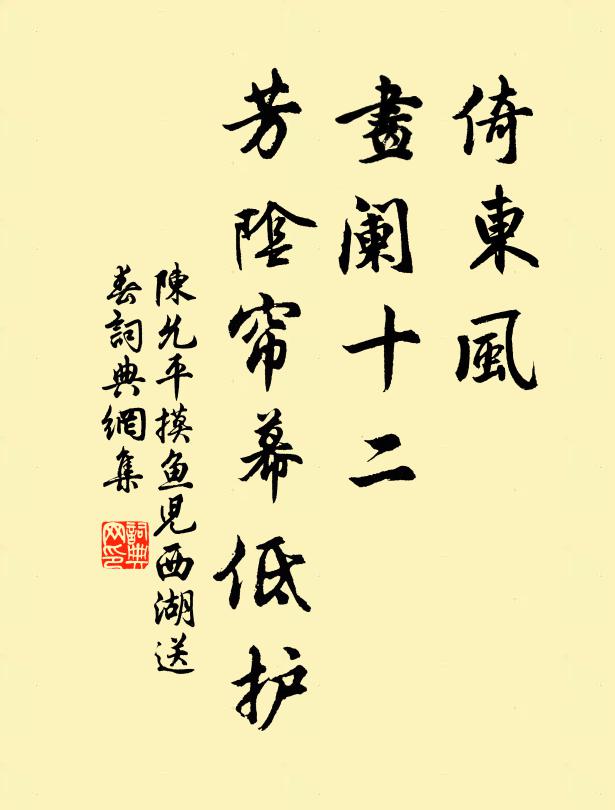 倚東風
畫阑十二
芳陰帘幕低护
陳允平摸鱼児西湖送
春詞典網集
詞典网印